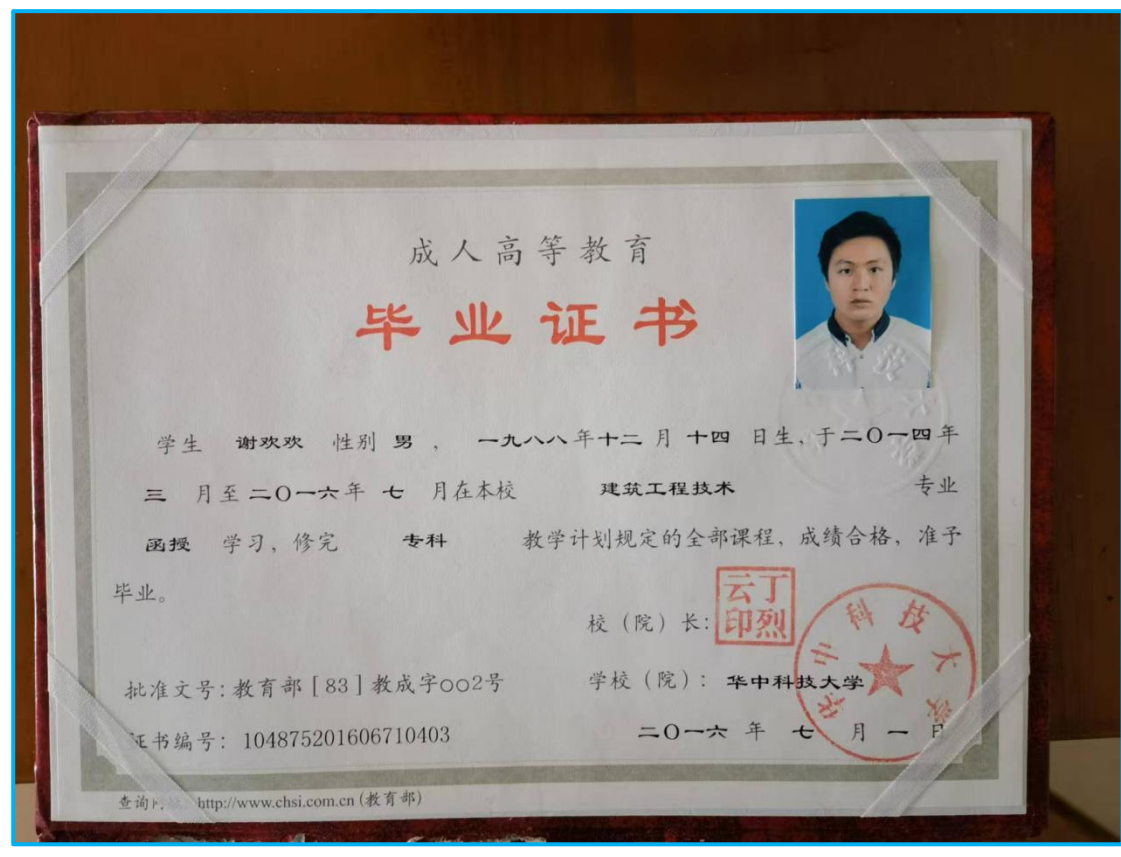 成人高等教育
毕业证书
学生 谢欢欢 性别 男 , 一九八八年十二月十四日生, 于二〇一四年
三 月至二〇一六年 七 月在本校 建筑工程技术 专业
函授 学习, 修完 专科 教学计划规定的全部课程, 成绩合格, 准予
毕业。
校（院）长: 丁烈云印
批准文号: 教育部［83］教成字○○2号
学校（院）: 华中科技大学
华中科技大学
证书编号: 104875201606710403
二〇一六 年 七 月 一 日
查询网 http://www.chsi.com.cn (教育部)